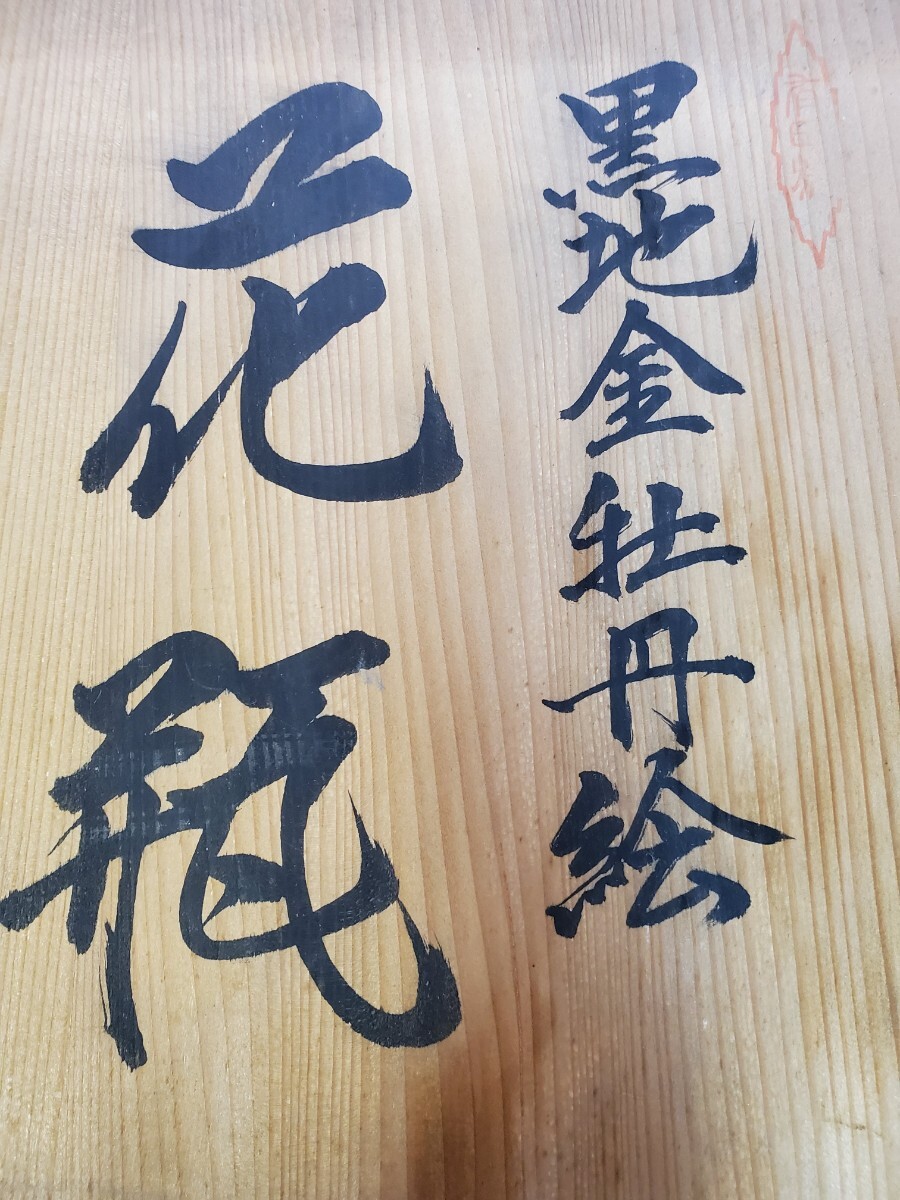 黒地金牡丹絵
花瓶